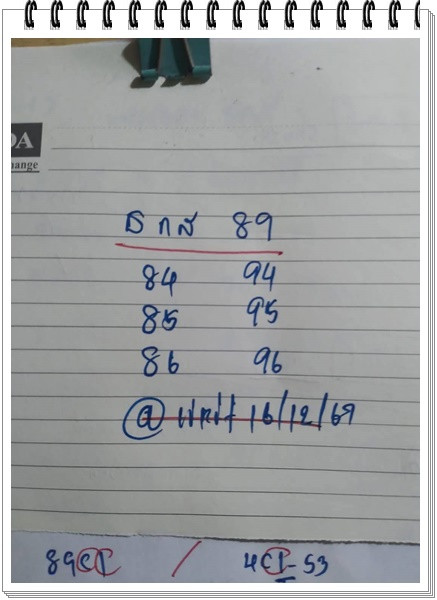 DA
hange
ธกส 89
84 94
85 95
86 96
16/12/69